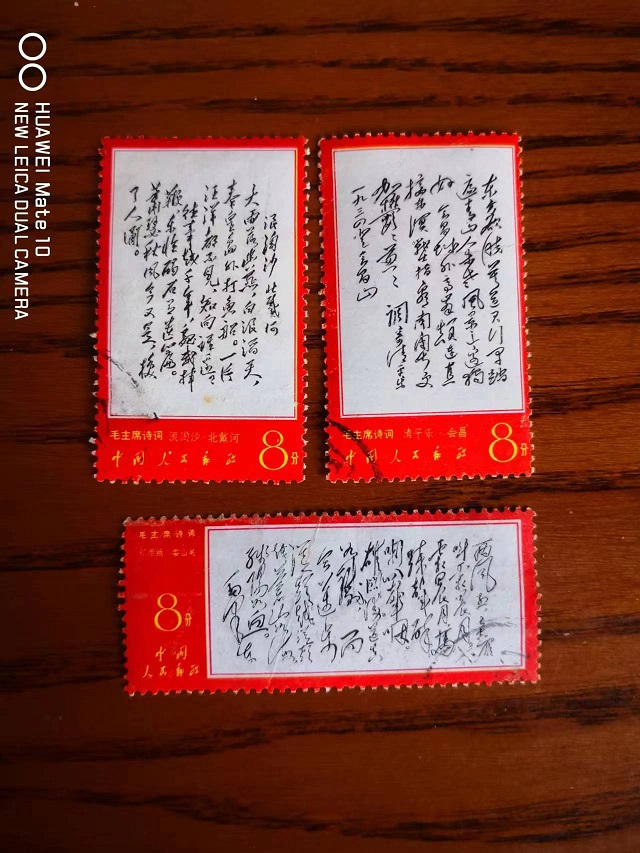 HUAWEI Mate 10
NEW LEICA DUAL CAMERA
浪淘沙 北戴河
大雨落幽燕,白浪滔天,
秦皇岛外打鱼船。一片
汪洋都不见,知向谁边?
往事越千年,魏武挥
鞭,东临碣石有遗篇。
萧瑟秋风今又是,换
了人间。
毛主席诗词 浪淘沙·北戴河
中国人民邮政
8分
东方欲晓莫道君行早踏
遍青山人未老风景这边独
好 会昌城外高峰颠连直
接东溟战士指看南粤更
加郁郁葱葱 调寄清平乐
一九三四年登会昌山
毛主席诗词 清平乐·会昌
中国人民邮政
8分
毛主席诗词
忆秦娥·娄山关
8分
中国
人民邮政
西风烈长空雁
叫霜晨月
霜晨月马
蹄声碎
喇叭声咽
雄关漫道真
如铁 而
今迈步
从头越从头
越苍山如海
残阳如血
毛泽东